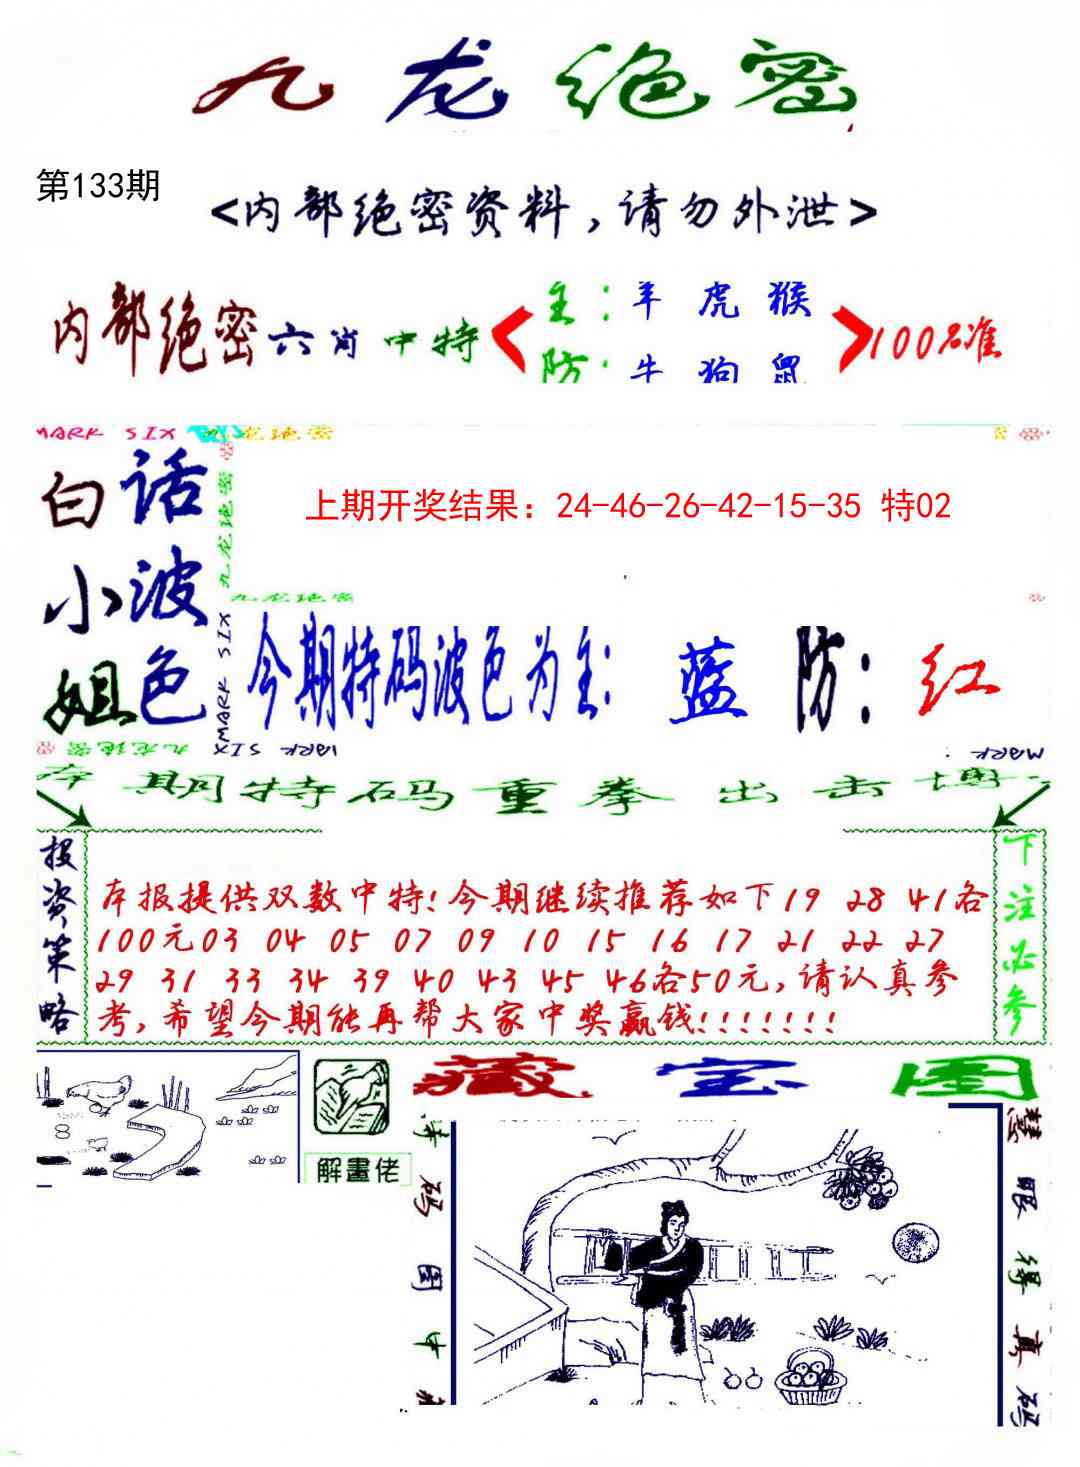 九龙绝密
第133期
<内部绝密资料，请勿外泄>
内部绝密六肖中特
主：羊 虎 猴
防：牛 狗 鼠
100%准
MARK SIX 九龙绝密
白话
小波
姐色
九龙绝密
上期开奖结果：24-46-26-42-15-35 特02
九龙绝密
MARK SIX
今期特码波色为主：蓝 防：红
九龙绝密
MARK SIX
MARK
本期特码重拳出击博
投资策略
本报提供双数中特!今期继续推荐如下19 28 41各
100元03 04 05 07 09 10 15 16 17 21 22 27
29 31 33 34 39 40 43 45 46各50元,请认真参
考,希望今期能再帮大家中奖赢钱!!!!!!!
下注必参
8
解畫佬
藏宝图
特码图中
慧眼得真码